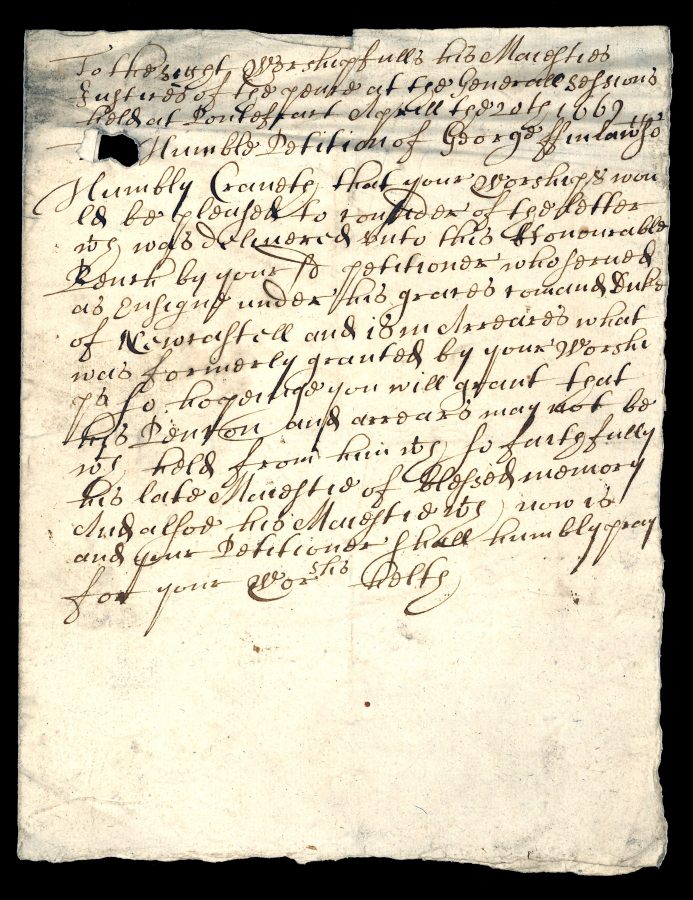 To the right Worshipfulls his Maiesties
Justices of the peace at the Generall Sessions
held at Pontefract Aprill the 20th 1669
Humble Petition of George ffinlaw
Humbly Craveth that your Worships wou
ld be pleased to consider of the letter
wch was delivered unto this Honourable
Bench by your sd petitioner who served
as Ensigne under his graces comand Duke
of Newcastell and is in Arreares what
was formerly granted by your Worshi
ps so hopeinge you will grant that
his Pention and arrears may not be
wth held from him wch so faithfully
his late Maiestie of blessed memory
And alsoe his Maiestie wch now is
and your Petitioner shall humbly pray
for your Worshs helth